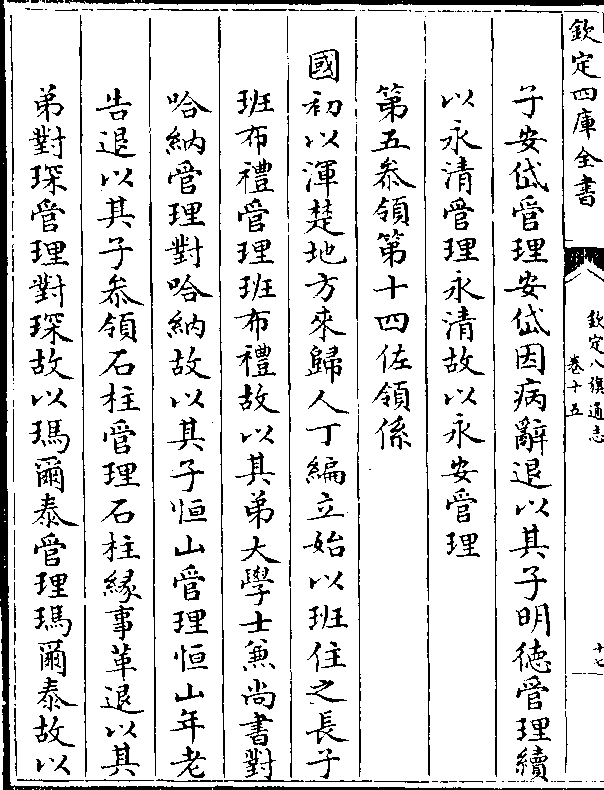 欽定四庫全書
欽定八旗通志
卷十五
十七
子安岱管理安岱因病辭退以其子明德管理續
以永清管理永清故以永安管理
第五叅領第十四佐領係
國初以渾楚地方來歸人丁編立始以班住之長子
班布禮管理班布禮故以其弟大學士兼尚書對
哈納管理對哈納故以其子恒山管理恒山年老
告退以其子叅領石柱管理石柱緣事革退以其
弟對琛管理對琛故以瑪爾泰管理瑪爾泰故以